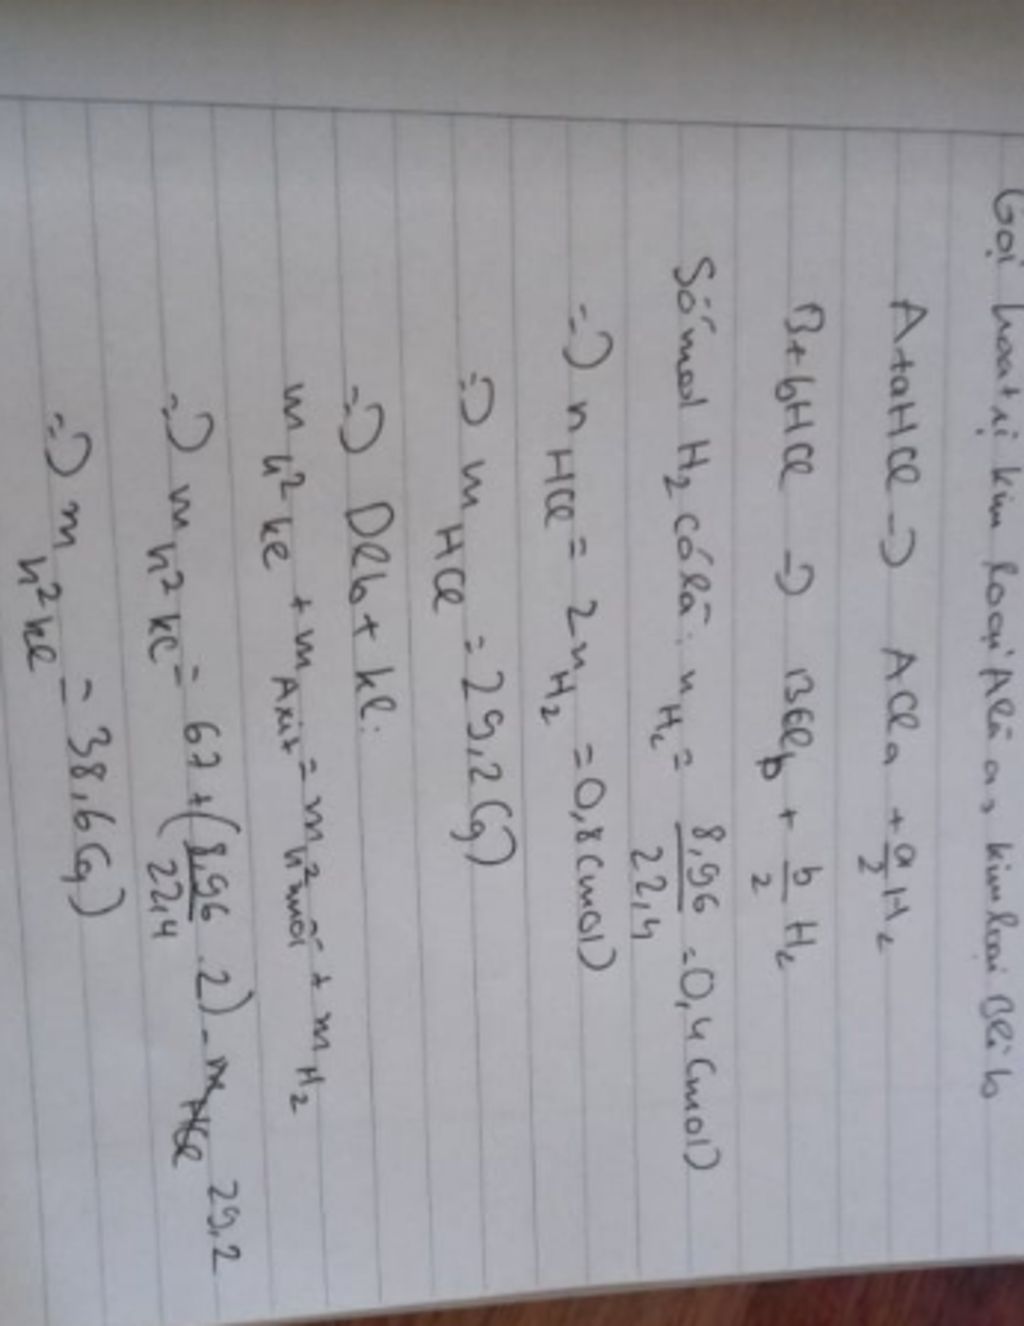 Gọi hoá trị kim loại A là a, kim loại B là b
A + aHCl -> ACla + a/2 H2
B + bHCl -> BClb + b/2 H2
Số mol H2 có là: nH2 = 8,96/22,4 = 0,4 (mol)
=> nHCl = 2nH2 = 0,8 (mol)
=> mHCl = 29,2 (g)
=> Dlbt kl:
mh² kl + mAxit = mh² muối + mH2
=> mh² kl = 67 + (8,96/22,4 . 2) - 29,2
=> mh² kl = 38,6 (g)